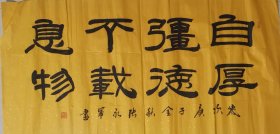 自彊不息
厚德載物
歲次庚子金秋陈永军書